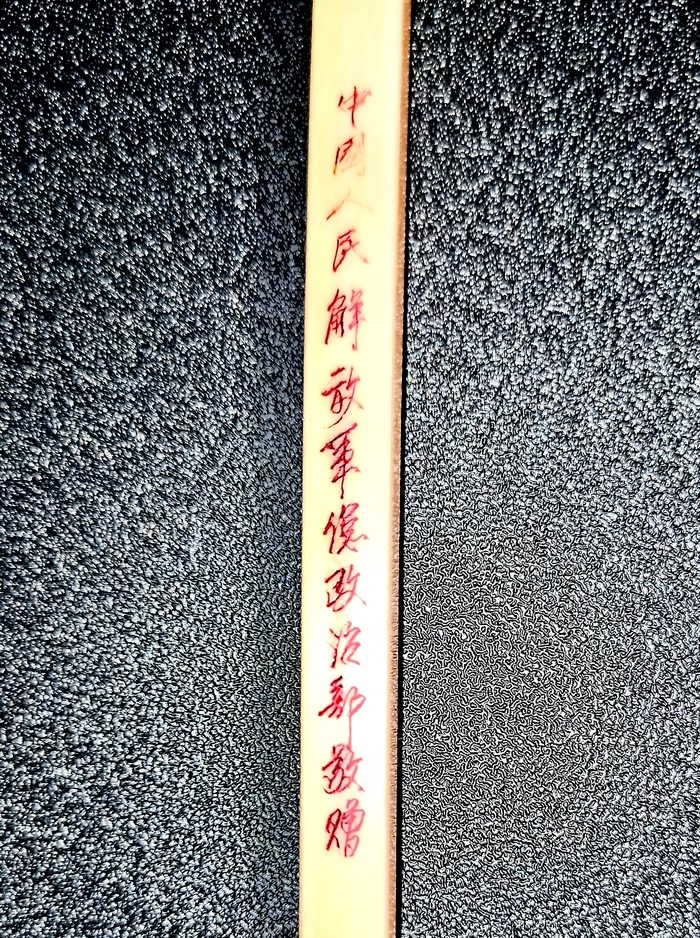 中國人民解放軍總政治部敬贈